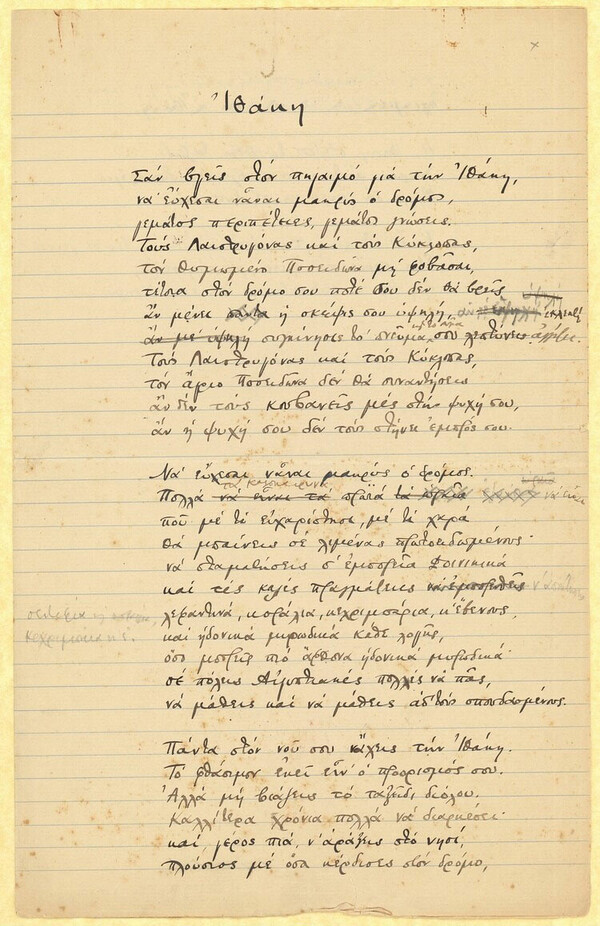 Ἰθάκη
Σὰν βγεῖς στὸν πηγαιμὸ γιὰ τὴν Ἰθάκη,
νὰ εὔχεσαι νἆναι μακρὺς ὁ δρόμος,
γεμάτος περιπέτειες, γεμάτος γνώσεις.
Τοὺς Λαιστρυγόνας καὶ τοὺς Κύκλωπας,
τὸν θυμωμένο Ποσειδῶνα μὴ φοβᾶσαι,
τέτοια στὸν δρόμο σου ποτέ σου δὲν θὰ βρεῖς
ὑψηλὴ
ἂν μένει πάντα ἡ σκέψις σου ὑψηλή, ἐκλεκτὴ
ἂν μὲ ὑψηλὴ συγκίνησις τὸ πνεῦμα σου λεπτύνει ἀγγίζει.
Τοὺς Λαιστρυγόνας καὶ τοὺς Κύκλωπας,
τὸν ἄγριο Ποσειδῶνα δὲν θὰ συναντήσεις
ἂν δὲν τοὺς κουβανεῖς μὲς στὴν ψυχή σου,
ἂν ἡ ψυχή σου δὲν τοὺς στήνει ἐμπρός σου.
Νὰ εὔχεσαι νἆναι μακρὺς ὁ δρόμος.
τὰ καλοκαιρινὰ
Πολλὰ νὰ εἶναι τὰ πρωϊὰ νὰ εἶναι
ποὺ μὲ τί εὐχαρίστησι, μὲ τί χαρὰ
θὰ μπαίνεις σὲ λιμένας πρωτοειδωμένους·
νὰ σταματήσεις σ' ἐμπορεῖα Φοινικικὰ
καὶ τὲς καλὲς πραγμάτειες νὰ ἐμπορευθεῖς ν' ἀποκτήσεις
σεντέφια
κεχριμπάρια
μαργαριτάρια, κοράλλια, κεχριμπάρια, κ' ἔβενους,
καὶ ἡδονικὰ μυρωδικὰ κάθε λογῆς,
ὅσο μπορεῖς πιὸ ἄφθονα ἡδονικὰ μυρωδικά·
σὲ πόλεις Αἰγυπτιακὲς πολλὲς νὰ πᾶς,
νὰ μάθεις καὶ νὰ μάθεις ἀπ' τοὺς σπουδασμένους.
Πάντα στὸν νοῦ σου νἄχεις τὴν Ἰθάκη.
Τὸ φθάσιμον ἐκεῖ εἶν' ὁ προορισμός σου.
Ἀλλὰ μὴ βιάζεις τὸ ταξεῖδι διόλου.
Καλλίτερα χρόνια πολλὰ νὰ διαρκέσει·
καί, γέρος πιά, ν' ἀράξεις στὸ νησί,
πλούσιος μὲ ὅσα κέρδισες στὸν δρόμο,